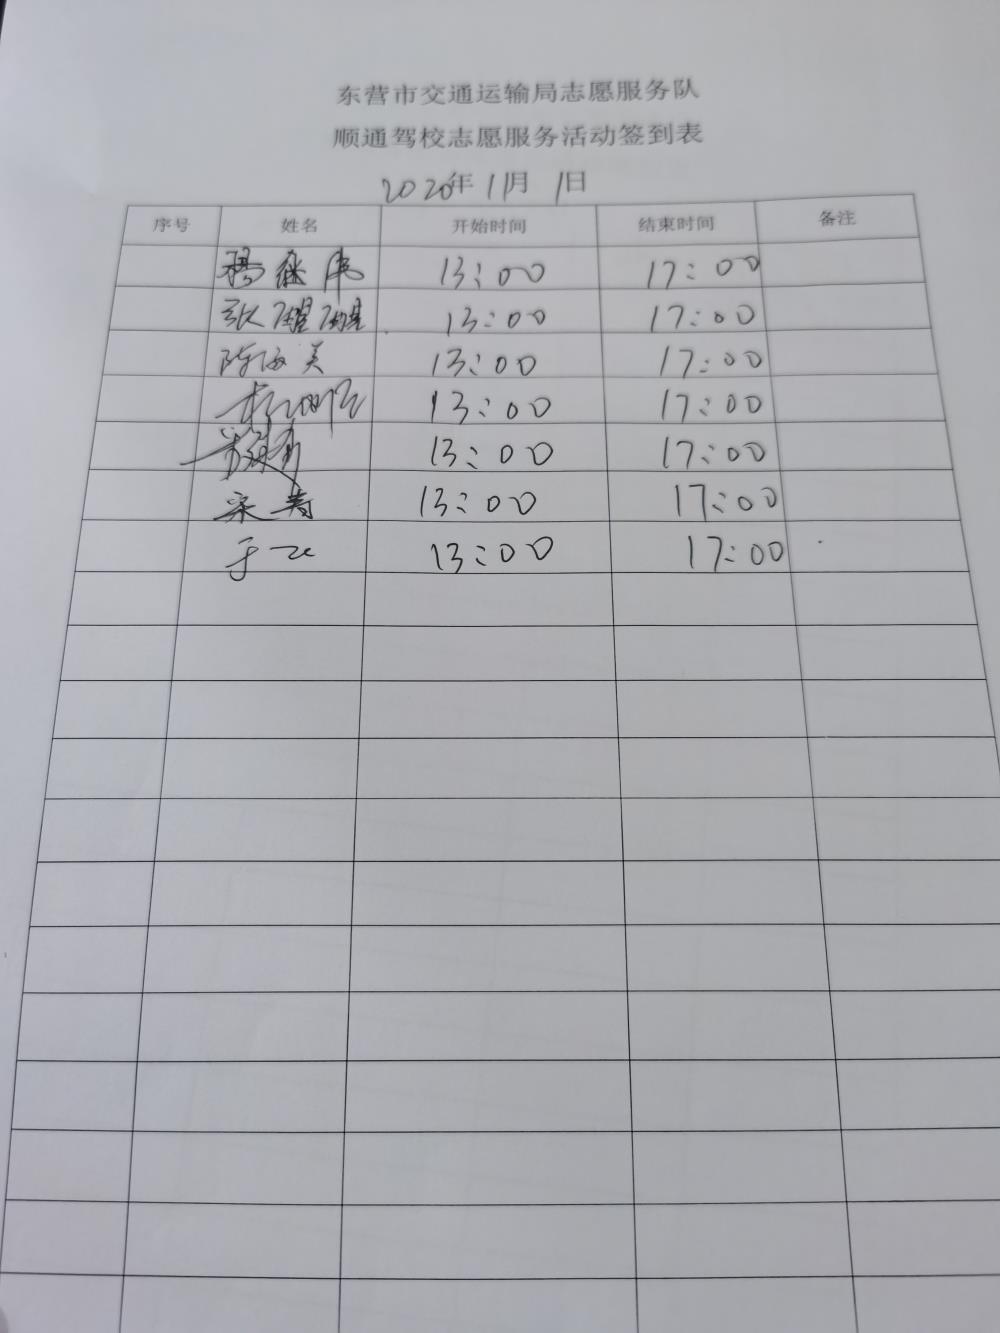 东营市交通运输局志愿服务队
顺通驾校志愿服务活动签到表
2020年11月1日
序号 姓名 开始时间 结束时间 备注
13:00 17:00
13:00 17:00
陈海美 13:00 17:00
13:00 17:00
13:00 17:00
13:00 17:00
于飞 13:00 17:00